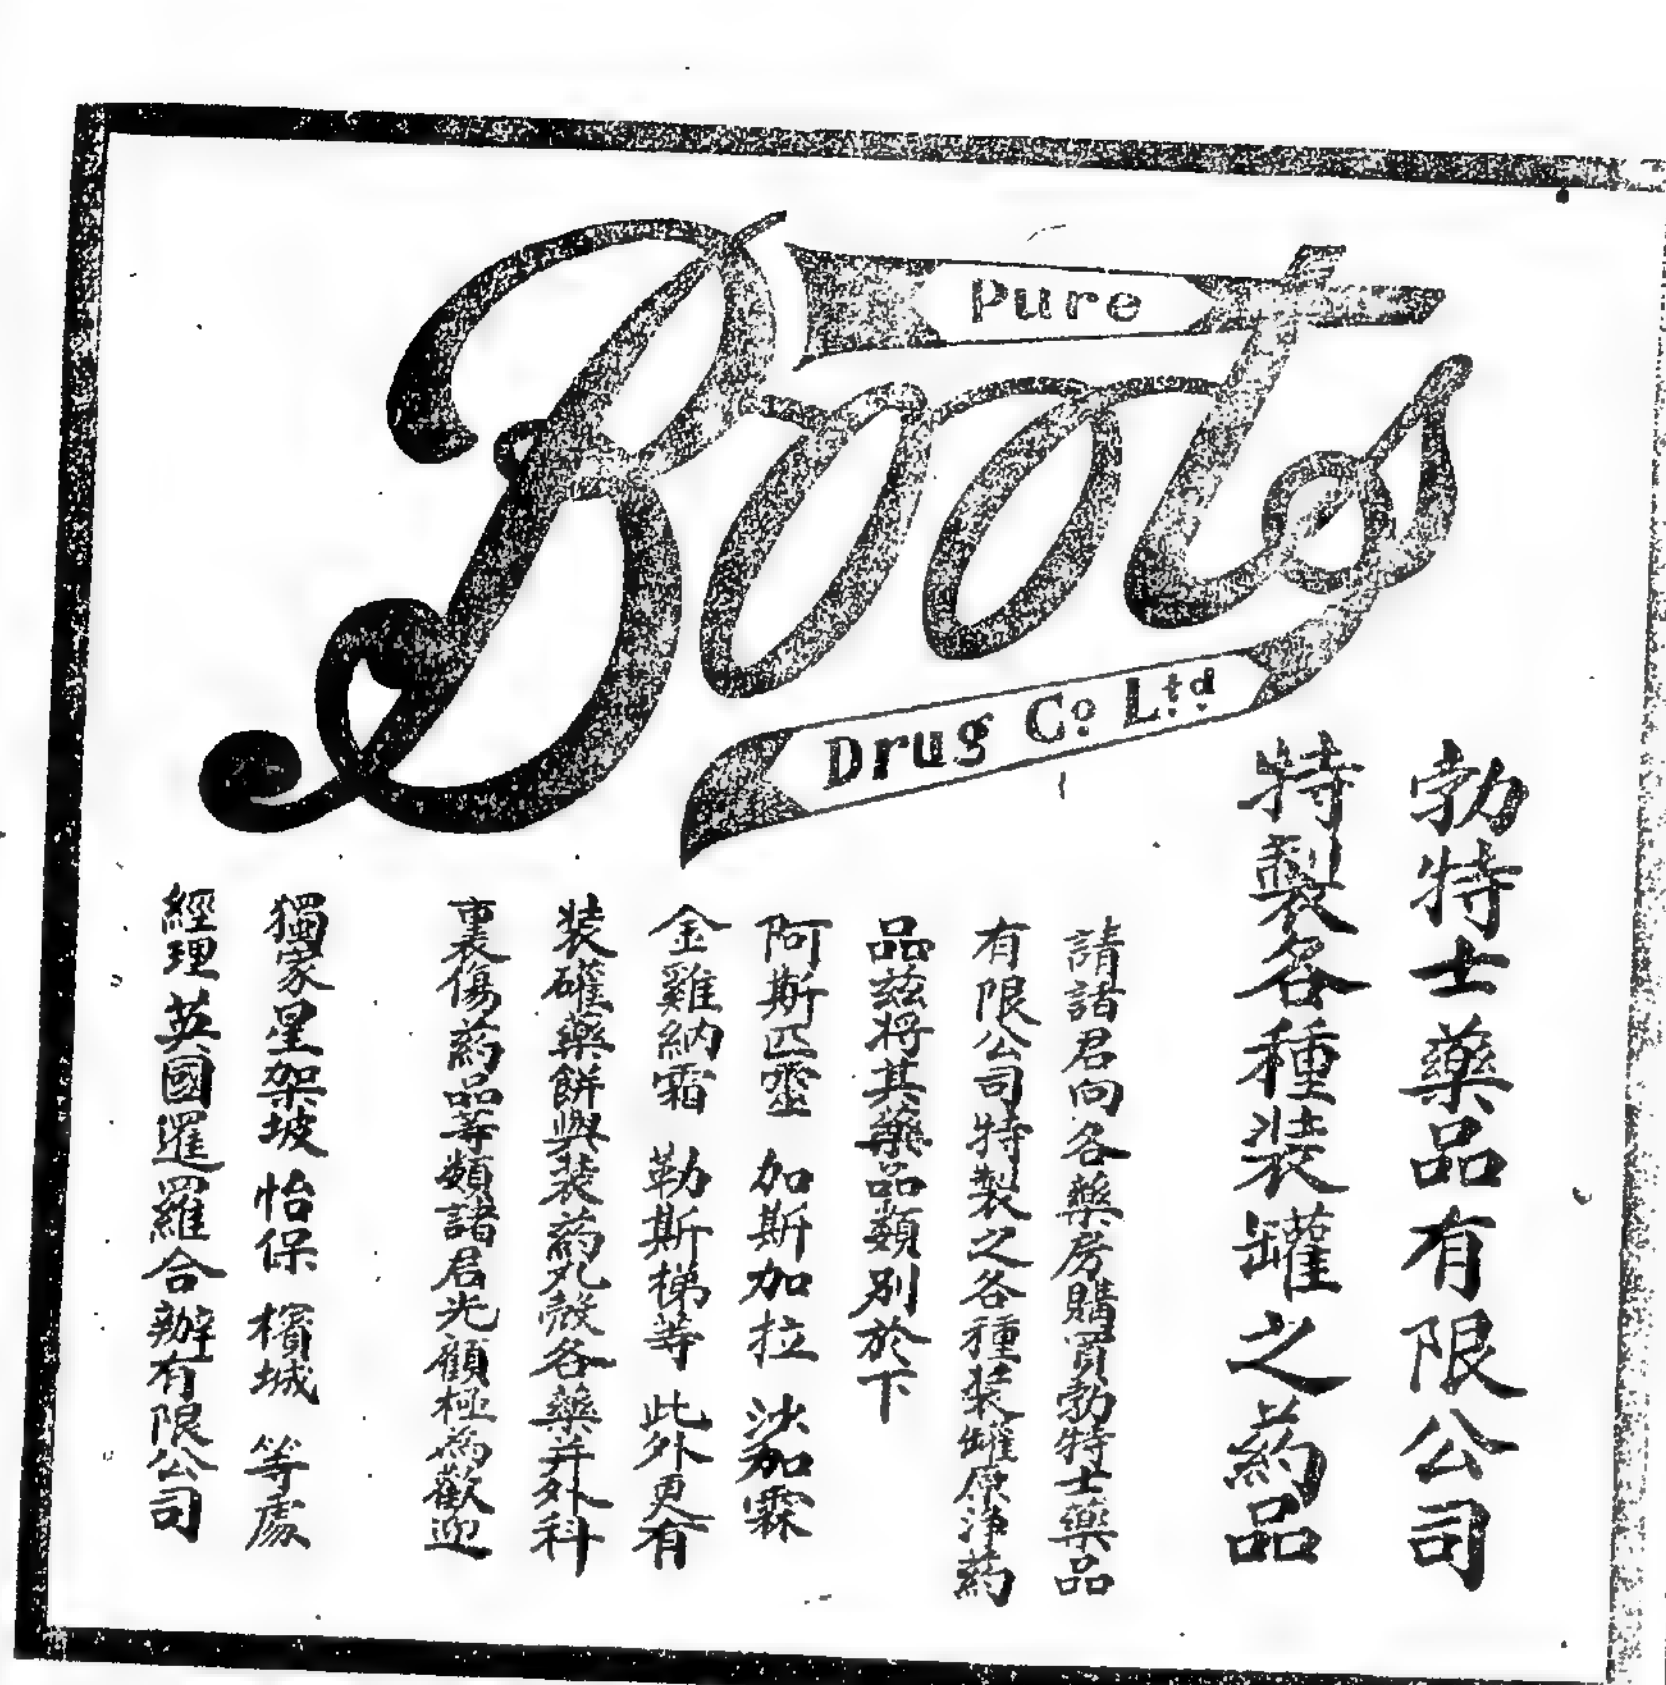 Pure
Boots
Drug Co. Ltd.
勃特士藥品有限公司
特製各種裝罐之葯品
請諸君向各藥房購買勃特士藥品
有限公司特製之各種裝罐原淨葯
品茲將其藥品類別於下
阿斯匹靈 加斯加拉 淋霖
金雞納霜 勒斯梯等 此外更有
裝罐藥餅與裝葯丸殼各藥并外科
裹傷葯品等頗諸君光顧極為歡迎
獨家星架坡 怡保 檳城 等處
經理英國暹羅合辦有限公司